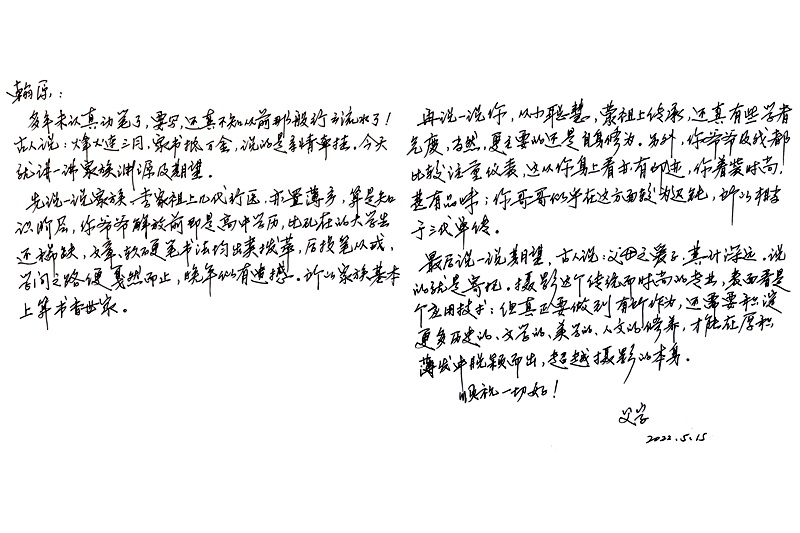 翰原：
多年未认真动笔了，要写，还真不知从前那般行云流水了！
古人说：烽火连三月，家书抵万金，说的是亲情牵挂，今天
就讲一讲家族渊源及期望。
先说一说家族，李家祖上几代行医，亦置薄产，算是知
识阶层，你爷爷解放前即是高中学历，比现在的大学生
还稀缺，文章、软硬笔书法均出类拔萃，后投笔从戎，
学问之路便戛然而止，晚年似有遗憾。所以家族基本
上算书香世家。
再说一说你，从小聪慧，蒙祖上传承，还真有些学者
气度，当然，更主要的还是自身修为。另外，你爷爷及我都
比较注重仪表，这从你身上看亦有印迹，你着装时尚，
甚有品味；你哥哥似乎在这方面较为迟钝，所以相当
于三代单传。
最后说一说期望，古人说：父母之爱子，其计深远。说
的就是寄托。摄影这个传统而时尚的专业，表面看是
个应用技术；但真正要做到有所作为，还需要积淀
更多历史的、文学的、美学的、人文的修养，才能在厚积
薄发中脱颖而出，超越摄影的本身。
顺祝一切好！
父字
2022.5.15